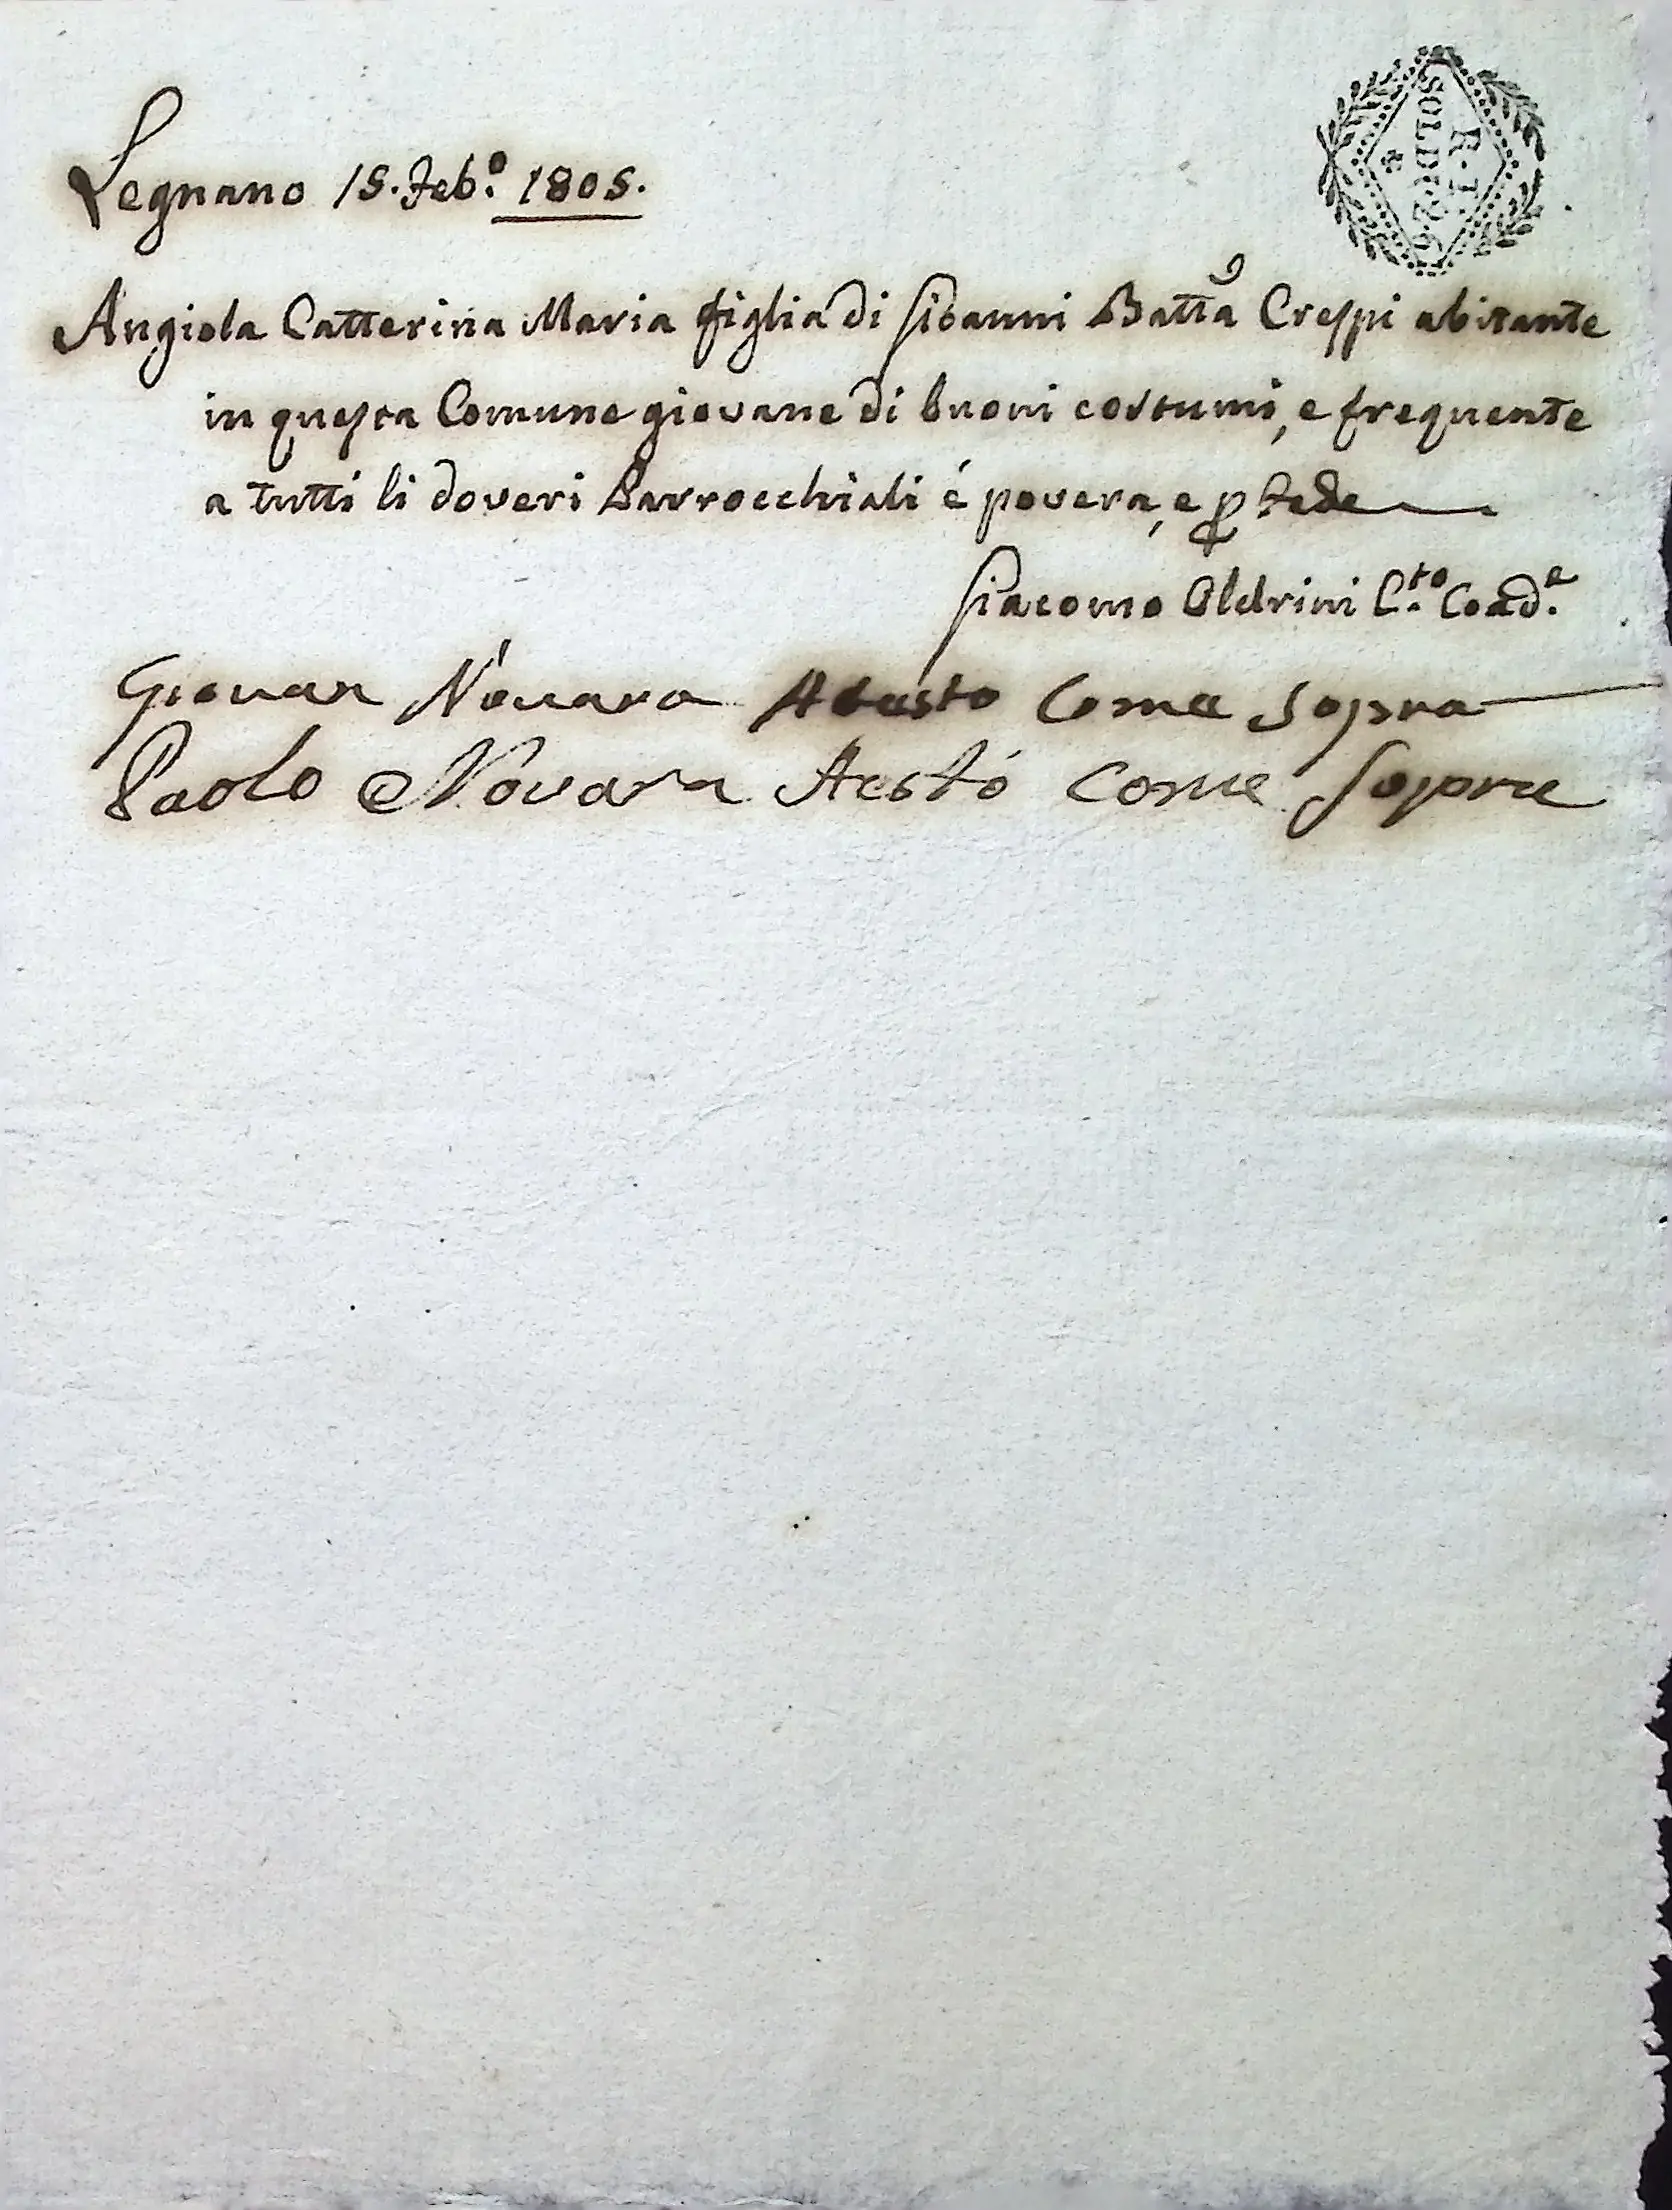 R. I.
SOLDI. 2. 6
Legnano 15. Feb.o 1805.
Angiola Catterina Maria figlia di Gioanni Batta Crespi abitante
in questa Comune giovane di buoni costumi, e frequente
a tutti li doveri Parrocchiali é povera, e p fede
Giacomo Oldrini C.to Coad.e
Giovan Novara Atesto Come Sopra
Paolo Novara Atestó Come Sopra